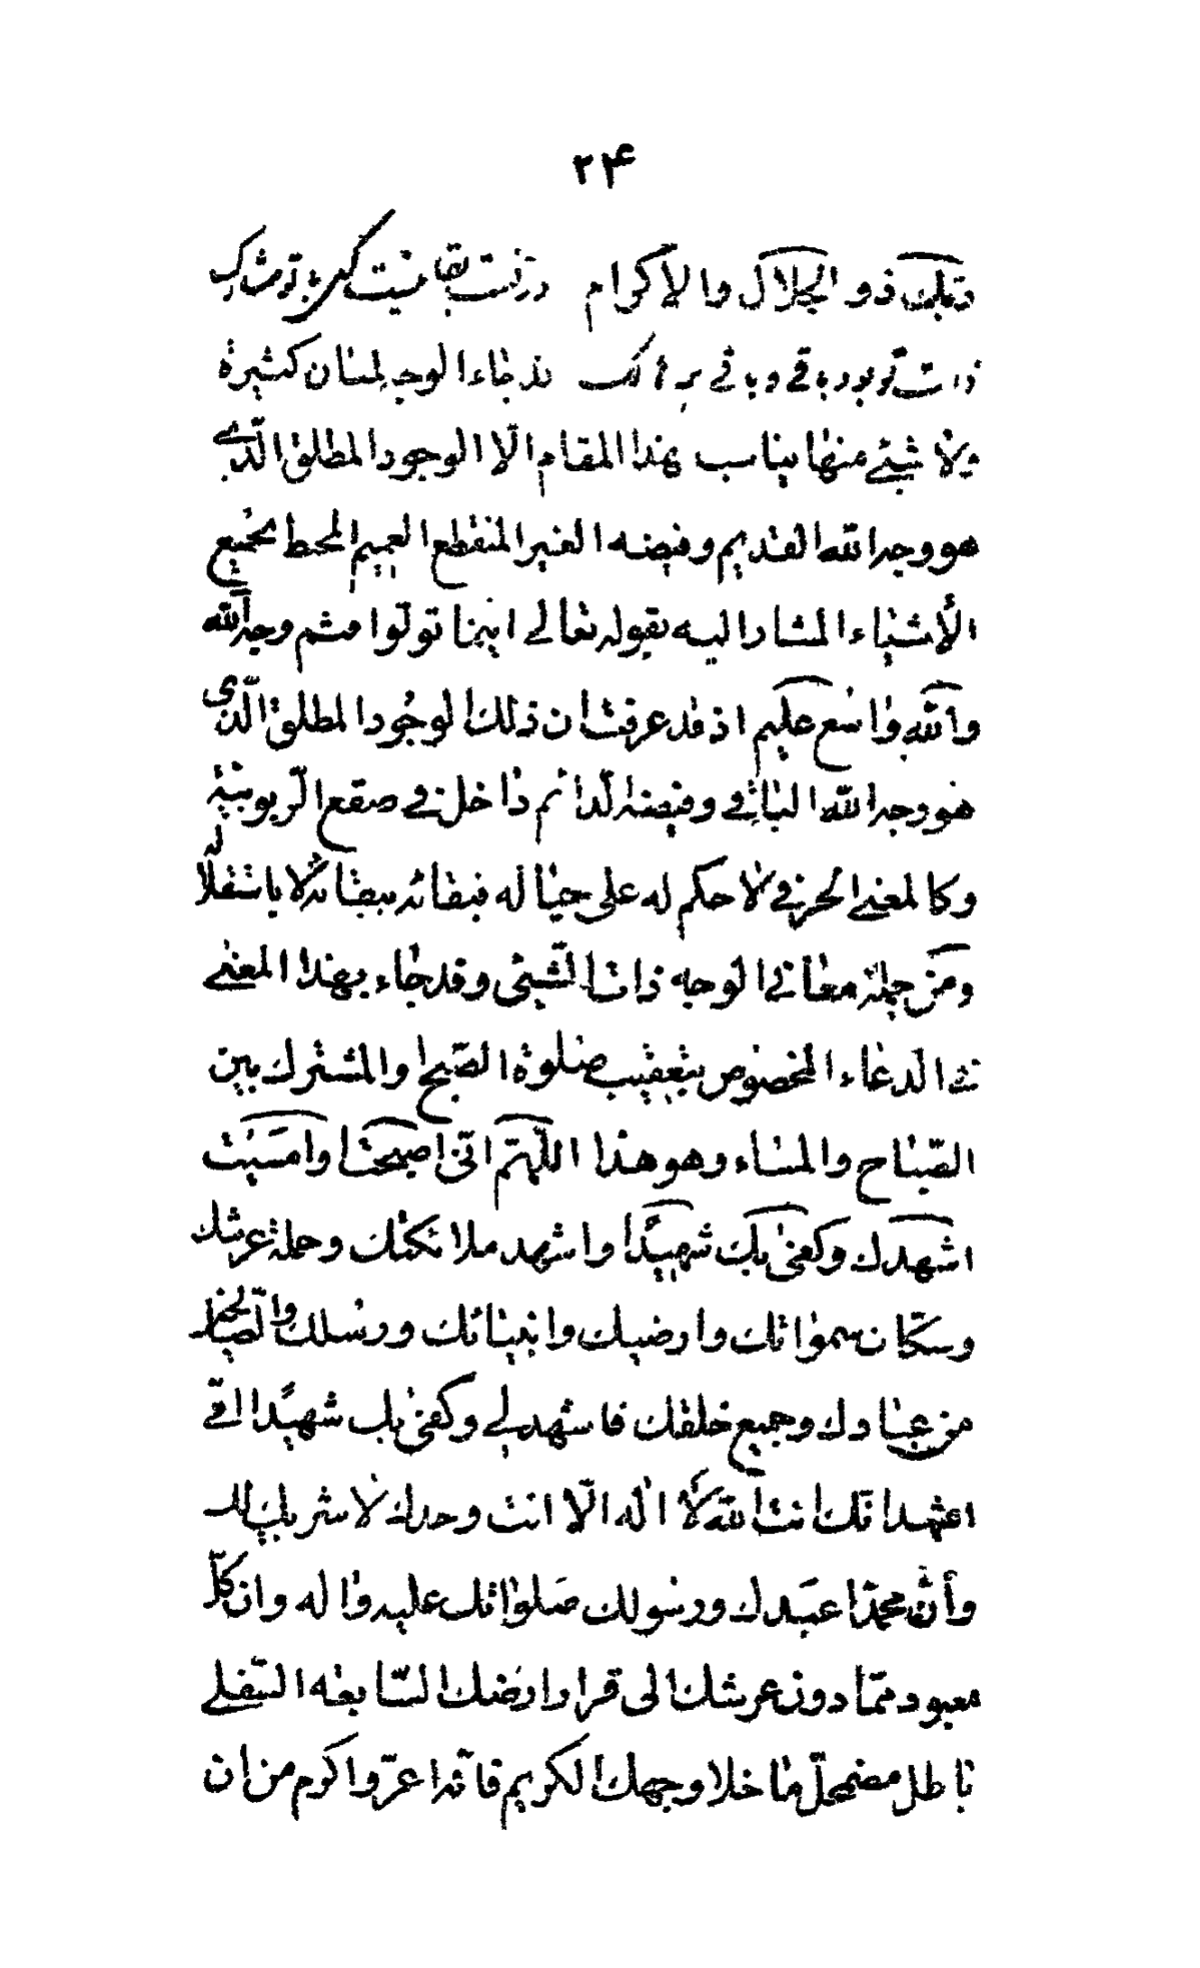 ۲۴
ربّك ذو الجلال والاكرام در نيست بقا نيست كس جز تو شريك
ذات تو بود باقى و باقى هالك قد جاء الوجه لمعان كثيرة
ولا شيئ منها يناسب بهذا المقام الّا الوجود المطلق الّذى
هو وجه الله القديم وفيضه الغير المنقطع العميم المحيط بجميع
الأشياء المشار اليه بقوله تعالى اينما تولّوا فثم وجه الله
والله واسع عليم اذ قد عرفت ان ذلك الوجود المطلق الّذى
هو وجه الله الباقى وفيضه الدّائم داخل فى صقع الرّبوبيّة
وكالمعنى الحرفى لا حكم له على حياله فبقائه ببقائه لا باستقلاله
ومن جملة معانى الوجه ذات الشّيئى وقد جاء بهذا المعنى
فى الدّعاء المخصوص بتعقيب صلوة الصّبح والمشترك بين
الصّباح والمساء وهو هذا اللّهمّ انّى اصبحت وامسيت
اشهدك وكفى بك شهيدًا واشهد ملائكتك وحملة عرشك
وسكّان سمواتك وارضيك وانبيائك ورسلك والصّالحين
من عبادك وجميع خلقك فاشهد لى وكفى بك شهيدًا انّى
اشهد انّك انت الله لا اله الّا انت وحدك لا شريك لك
وأنّ محمّدًا عبدك ورسولك صلواتك عليه واله وان كلّ
معبود ممّا دون عرشك الى قرار ارضك السّابعة السّفلى
باطل مضمحلّ ما خلا وجهك الكريم فانّه اعزّ واكرم من ان